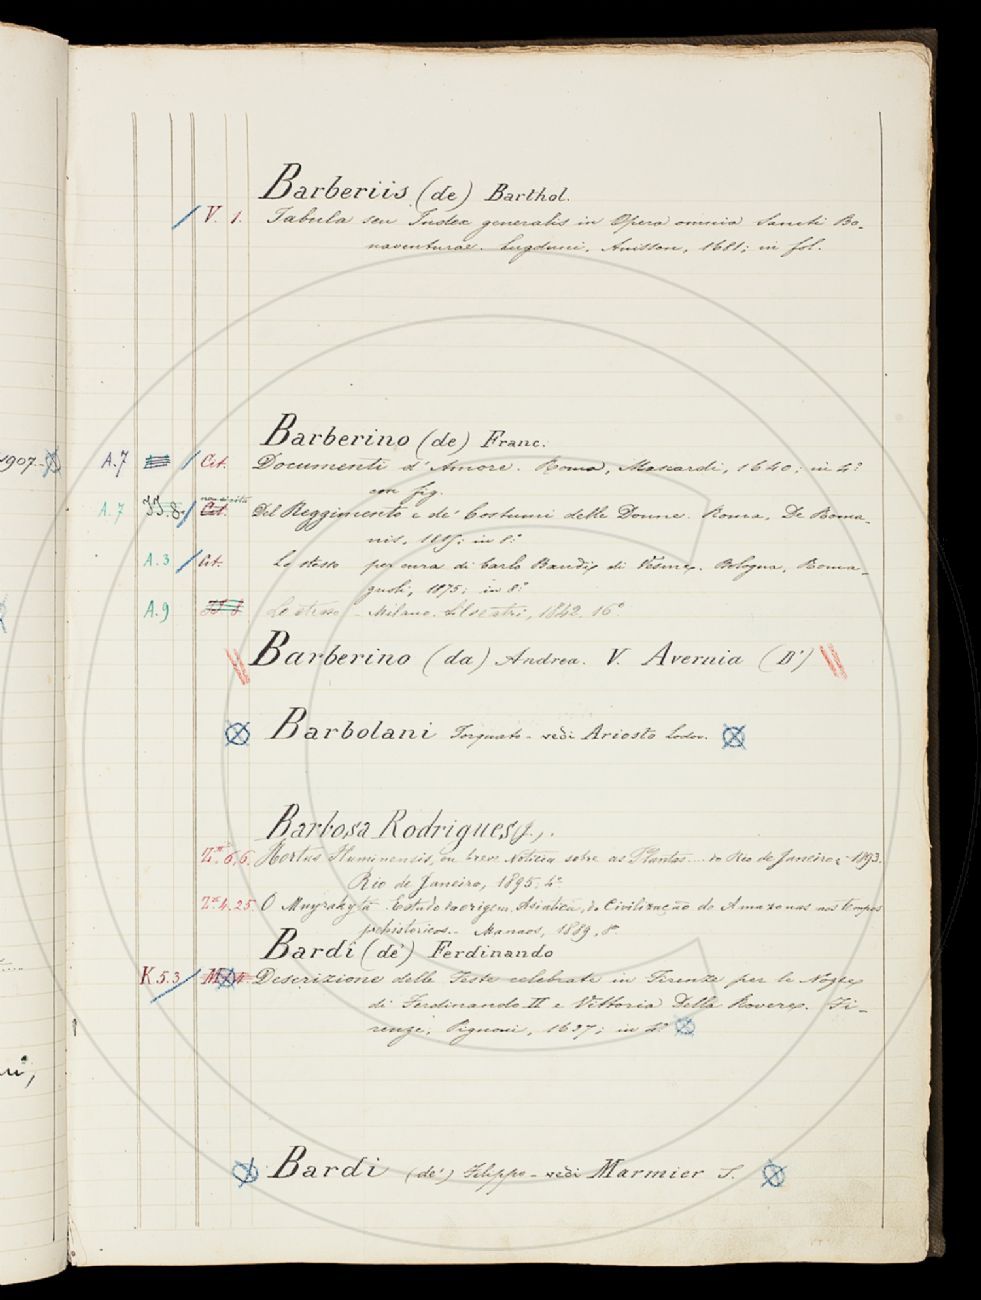 Barberiis (de) Barthol.
V. 1. Tabula seu Index generalis in Opera omnia Sancti Bo-
naventurae. Lugduni, Anisson, 1681; in fol.
Barberino (de) Franc.
1907. A.7 Cit. Documenti d'Amore. Roma, Mascardi, 1640; in 4°
con fig.
A.7 II.8. Cit. Del Reggimento e de' Costumi delle Donne. Roma, De Roma-
nis, 1815; in 8°
A.3 Cit. Lo stesso per cura di Carlo Baudi di Vesme. Bologna, Roma-
gnoli, 1875; in 8°
A.9 Lo stesso - Milano, Silvestri, 1842. 16°
Barberino (da) Andrea. V. Avernia (D')
Barbolani Torquato - vedi Ariosto Lodov.
Barbosa Rodrigues (J.).
6.6. Hortus Fluminensis, ou breve Noticia sobre as Plantas .... no Rio de Janeiro - 1893.
Rio de Janeiro, 1895; 4°
4.25 O Muyrakytã. Estudo da origem Asiatica, da Civilização do Amazonas nos tempos
prehistoricos. - Manaos, 1889, 8°
Bardi (de') Ferdinando
K 5.3 Descrizione delle Feste celebrate in Firenze per le Nozze
di Ferdinando II e Vittoria Della Rovere. Fi-
renze, Pignoni, 1637; in 4°
Bardi (de') Filippo - vedi Marmier S.